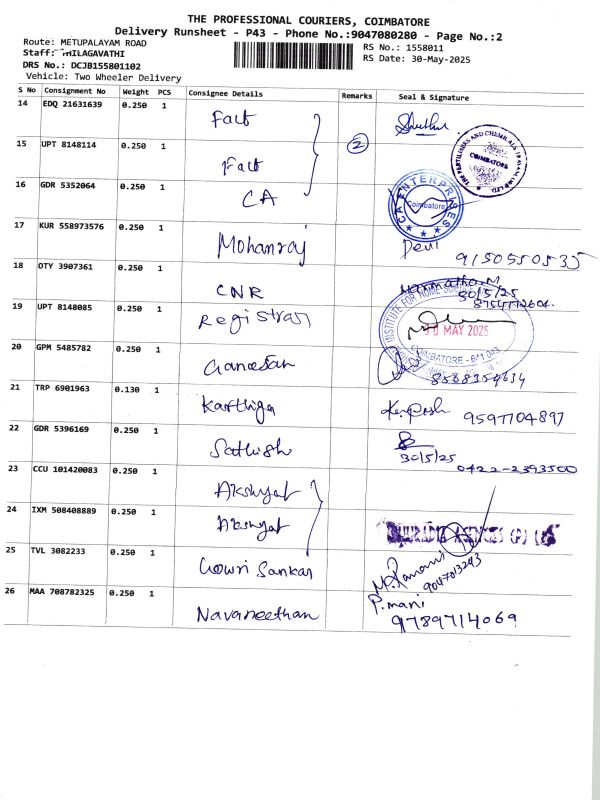 THE PROFESSIONAL COURIERS, COIMBATORE
Delivery Runsheet - P43 - Phone No.:9047080280 - Page No.:2
Route: METUPALAYAM ROAD
RS No.: 1558011
Staff: THILAGAVATHI
RS Date: 30-May-2025
DRS No.: DCJB155801102
Vehicle: Two Wheeler Delivery
S No Consignment No Weight PCS Consignee Details Remarks Seal & Signature
14 EDQ 21631639 0.250 1 Fact
15 UPT 8148114 0.250 1 Fact 2
16 GDR 5352064 0.250 1 CA
CA ENTERPRISES Coimbatore
COIMBATORE
17 KUR 558973576 0.250 1 Mohanraj Devi 9150550535
18 OTY 3907361 0.250 1 CNR
30/5/25
19 UPT 8148085 0.250 1 Registrar
INSTITUTE FOR HOME
30 MAY 2025
COIMBATORE - 641 043
20 GPM 5485782 0.250 1 Ganesan
21 TRP 6901963 0.130 1 Karthiga 9597704897
22 GDR 5396169 0.250 1 Sathish
30/5/25
0422-2393500
23 CCU 101420083 0.250 1 Akshyat
24 IXM 508408889 0.250 1 Akshyat
25 TVL 3082233 0.250 1 Gowri Sankar M. Ramani 9047013243
26 MAA 708782325 0.250 1 Navaneethan P. mani
9789714069